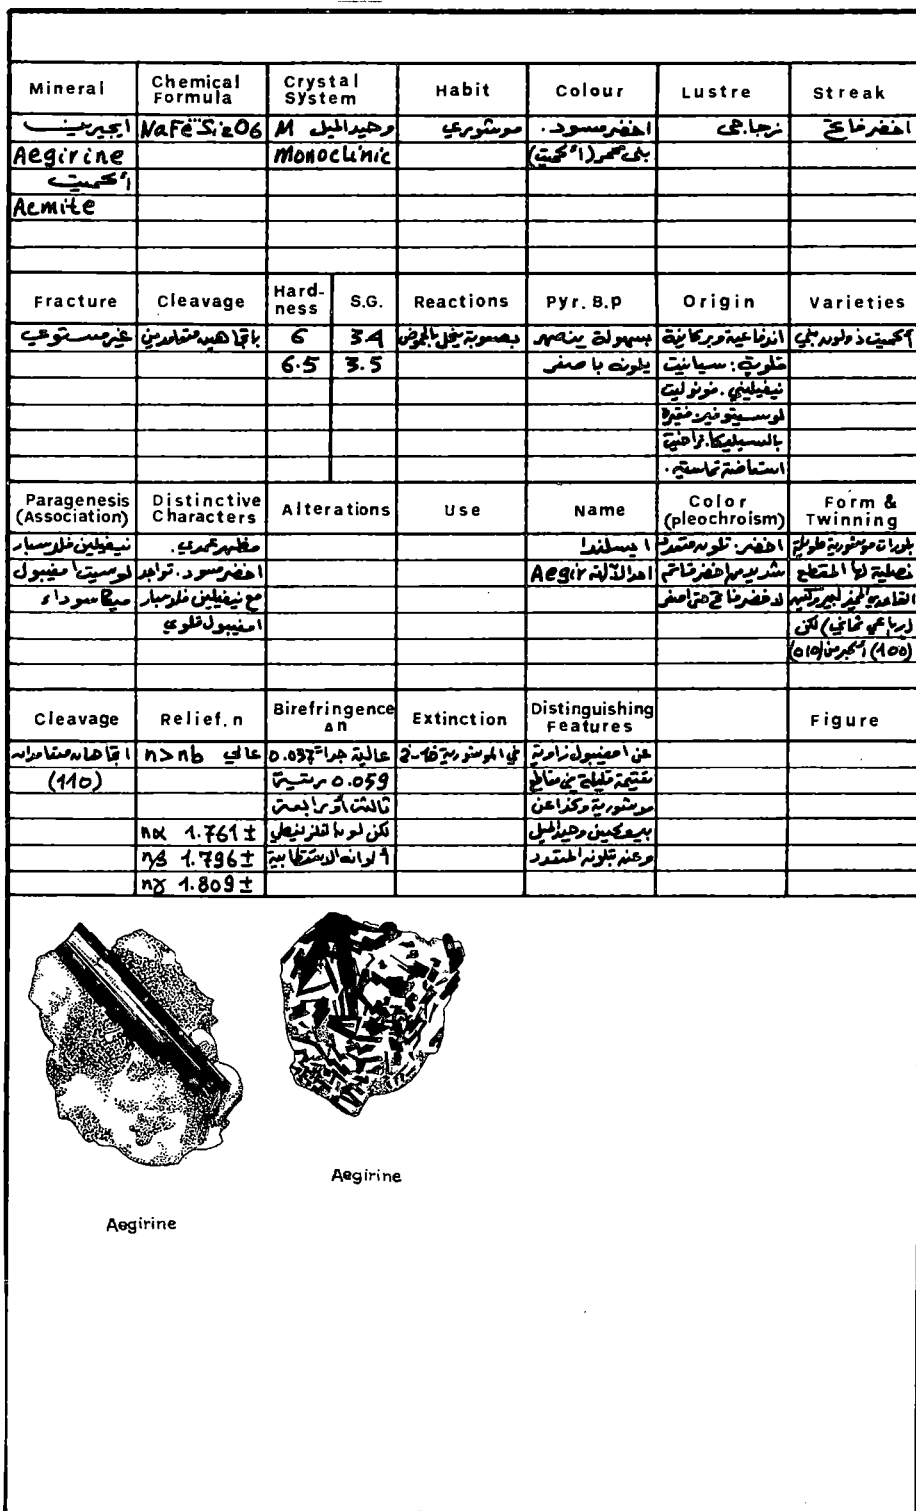 Mineral Chemical Formula Crystal System Habit Colour Lustre Streak
ايجيريت NaFe‴Si2O6 وحيد الميل M موشوري اخضر مسود. زجاجي اخضر فاتح
Aegirine Monoclinic بني محمر (أكميت)
أكميت
Acmite
Fracture Cleavage Hardness S.G. Reactions Pyr. B.p Origin Varieties
غير مستوي باتجاهين متعامدين 6 3.4 بصعوبة ينحل بالحموض بسهولة ينصهر اندفاعية وبركانية أكميت ذو لون بني
6.5 3.5 يلونه باصفر قلوية: سيانيت
نيفيليني. فونوليت
لوسيتوفير: فقيرة
بالسيليكا. غرانيت
استعاضة تماسية.
Paragenesis (Association) Distinctive Characters Alterations Use Name Color (pleochroism) Form & Twinning
نيفيلين فلدسبار مظهر عمدي. ايسلندا اخضر: تلونه متعدد بلورات موشورية طويلة
لوسيت امفيبول اخضر مسود. تواجد احد الآلهة Aegir شديد من اخضر قاتم نصلية لها المقطع
ميكا سوداء مع نيفيلين فلدسبار لاخضر فاتح حتى اصفر القاعدي المميز للبيروكسين
امفيبول قلوي (رباعي ثماني) لكن
(100) أكبر من (010)
Cleavage Relief. n Birefringence Δn Extinction Distinguishing Features Figure
اتجاهان متعامدان عالي n>nb عالية جدا 0.037= في الموشورية 2-10 عن امفيبول زاوية
(110) 0.059 مرتبة تنيمة قليلة في مقاطع
ثالثة أو رابعة موشورية وكذا عن
nα 1.761 ± لكن لون الفلز يغطي بيروكسين وحيد الميل
nβ 1.796 ± ألوانه الاستقطابية وعنه بتلونه المتعدد
nγ 1.809 ±
Aegirine
Aegirine